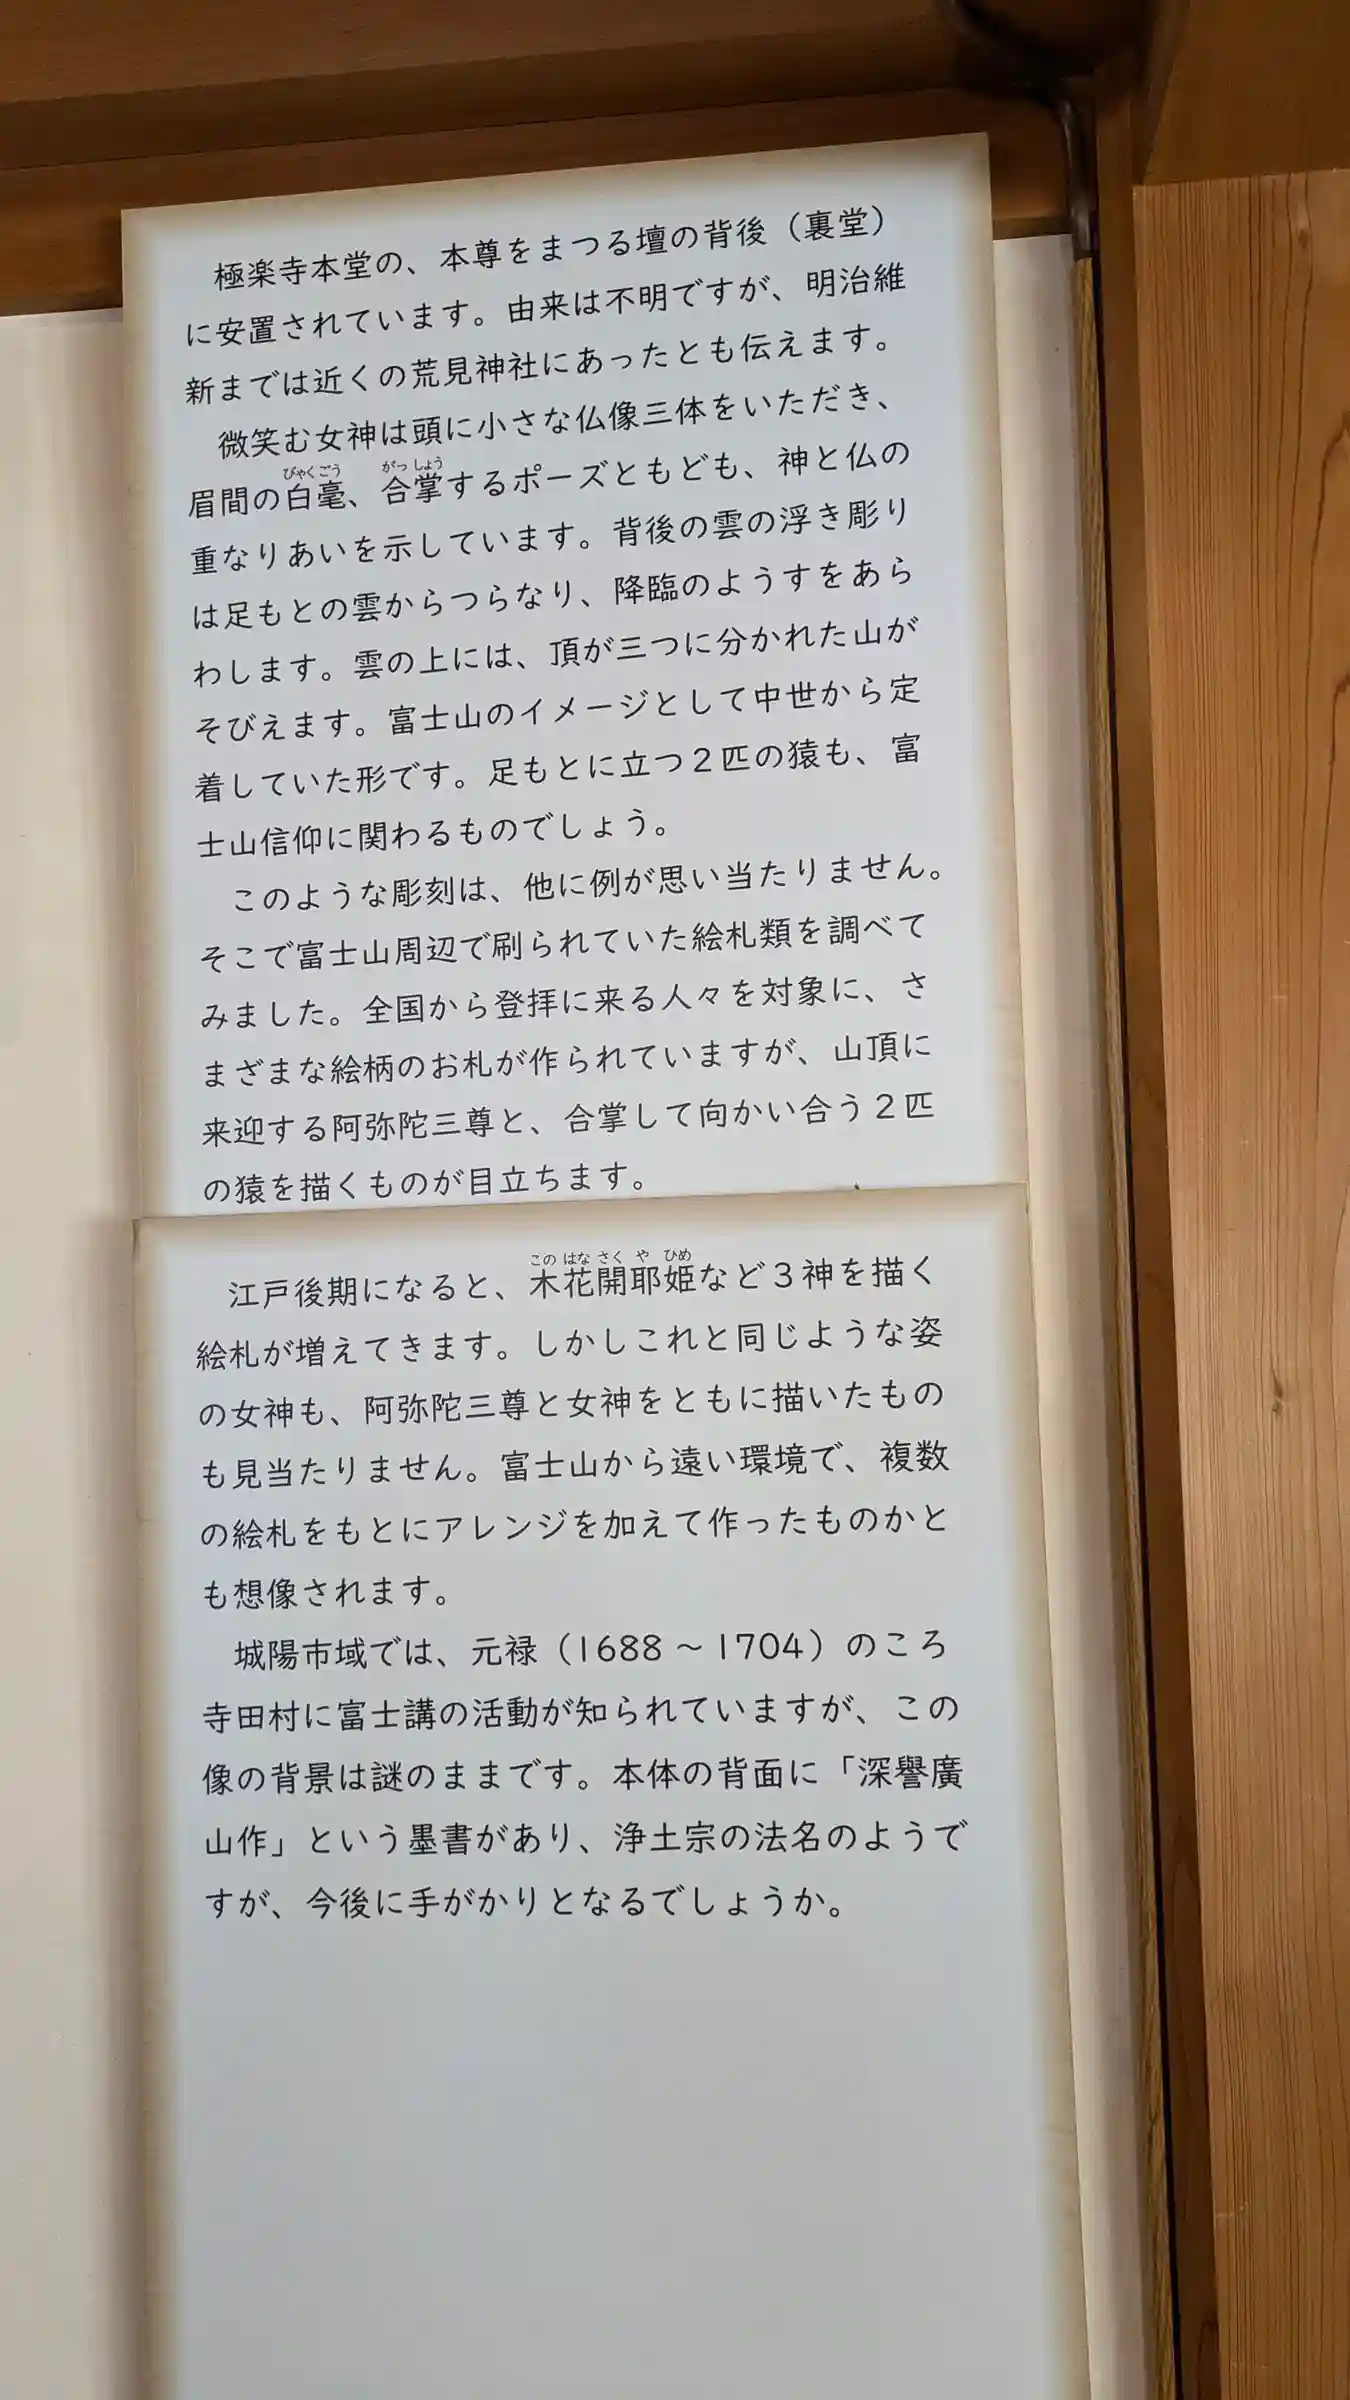 極楽寺本堂の、本尊をまつる壇の背後（裏堂）
に安置されています。由来は不明ですが、明治維
新までは近くの荒見神社にあったとも伝えます。
微笑む女神は頭に小さな仏像三体をいただき、
びゃくごう がっしょう
眉間の白毫、合掌するポーズともども、神と仏の
重なりあいを示しています。背後の雲の浮き彫り
は足もとの雲からつらなり、降臨のようすをあら
わします。雲の上には、頂が三つに分かれた山が
そびえます。富士山のイメージとして中世から定
着していた形です。足もとに立つ２匹の猿も、富
士山信仰に関わるものでしょう。
このような彫刻は、他に例が思い当たりません。
そこで富士山周辺で刷られていた絵札類を調べて
みました。全国から登拝に来る人々を対象に、さ
まざまな絵柄のお札が作られていますが、山頂に
来迎する阿弥陀三尊と、合掌して向かい合う２匹
の猿を描くものが目立ちます。
この はな さく や ひめ
江戸後期になると、木花開耶姫など３神を描く
絵札が増えてきます。しかしこれと同じような姿
の女神も、阿弥陀三尊と女神をともに描いたもの
も見当たりません。富士山から遠い環境で、複数
の絵札をもとにアレンジを加えて作ったものかと
も想像されます。
城陽市域では、元禄（1688～1704）のころ
寺田村に富士講の活動が知られていますが、この
像の背景は謎のままです。本体の背面に「深譽廣
山作」という墨書があり、浄土宗の法名のようで
すが、今後に手がかりとなるでしょうか。